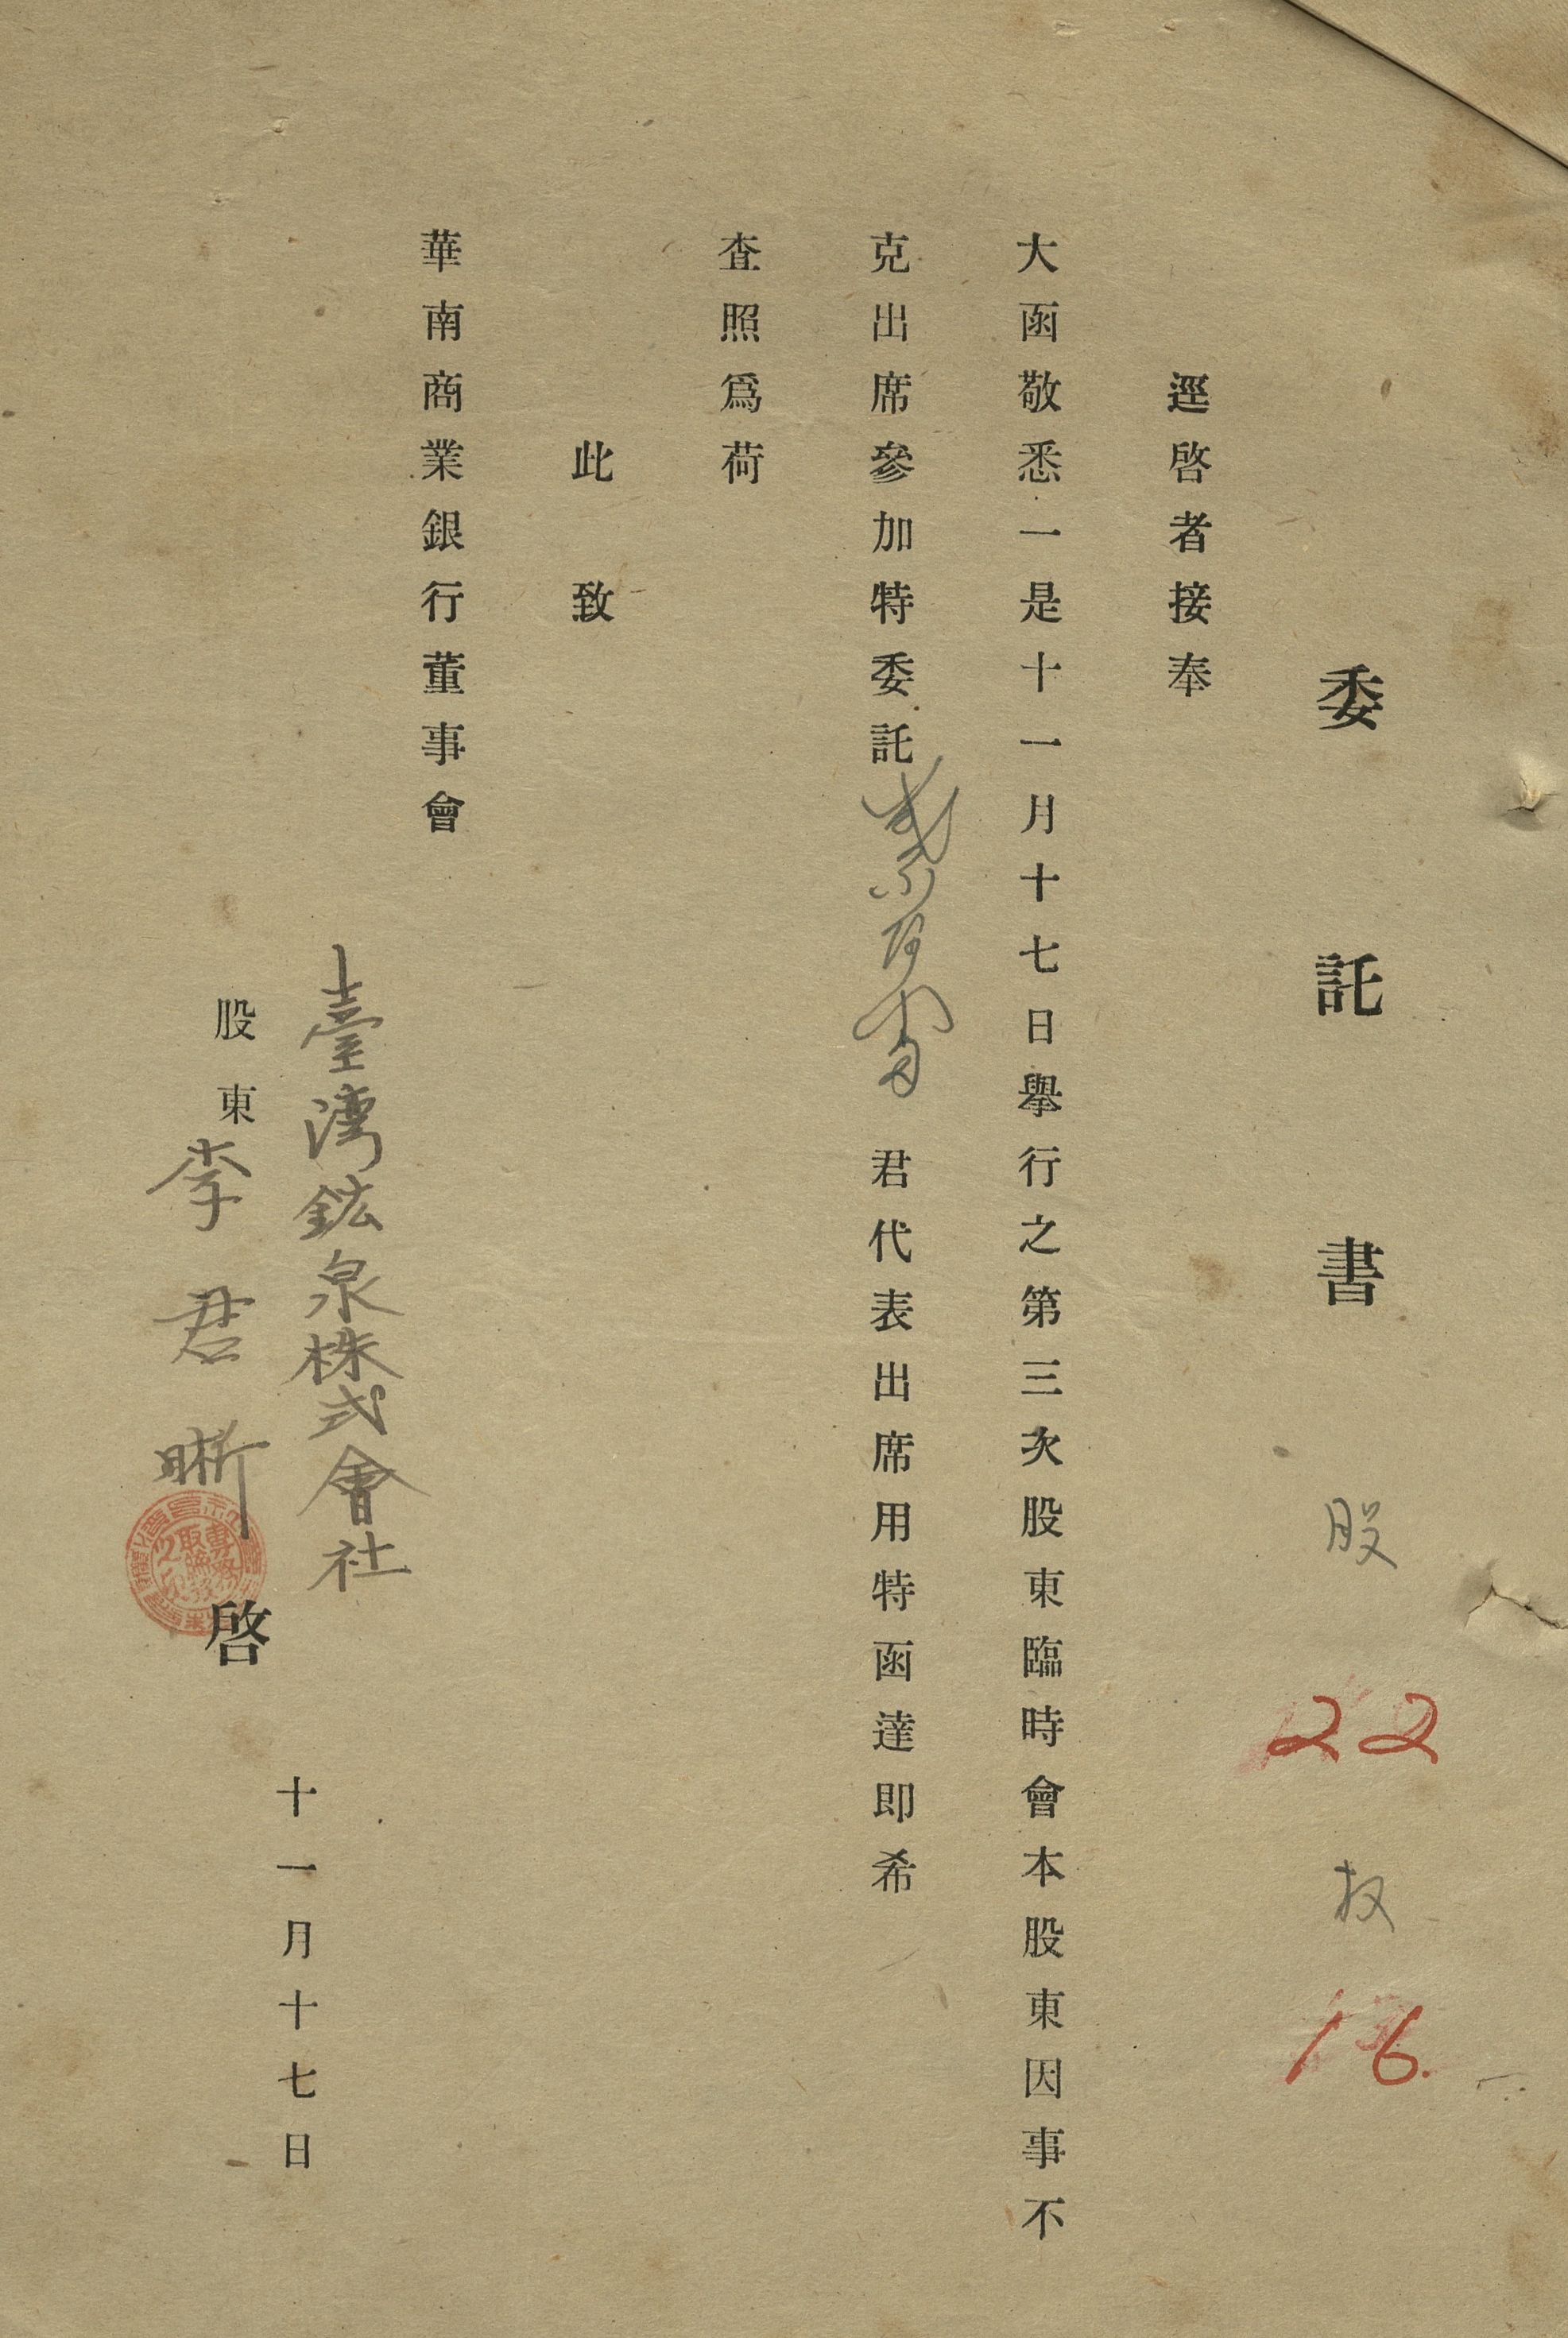 委託書 股 22 权 16.
逕啓者接奉
大函敬悉一是十一月十七日擧行之第三次股東臨時會本股東因事不
克出席參加特委託 君代表出席用特函達即希
查照爲荷
此致
華南商業銀行董事會
臺灣鉱泉株式會社
股東 李君晰 啓
十一月十七日